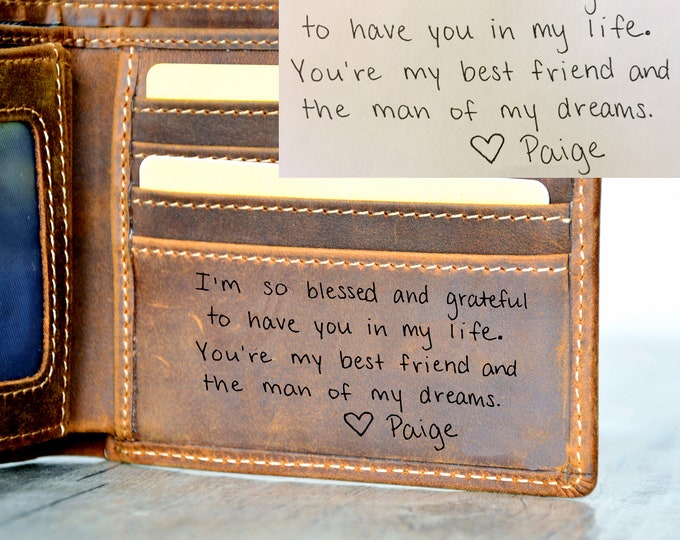 to have you in my life.
You're my best friend and
the man of my dreams.
♡ Paige
I'm so blessed and grateful
to have you in my life.
You're my best friend and
the man of my dreams.
♡ Paige